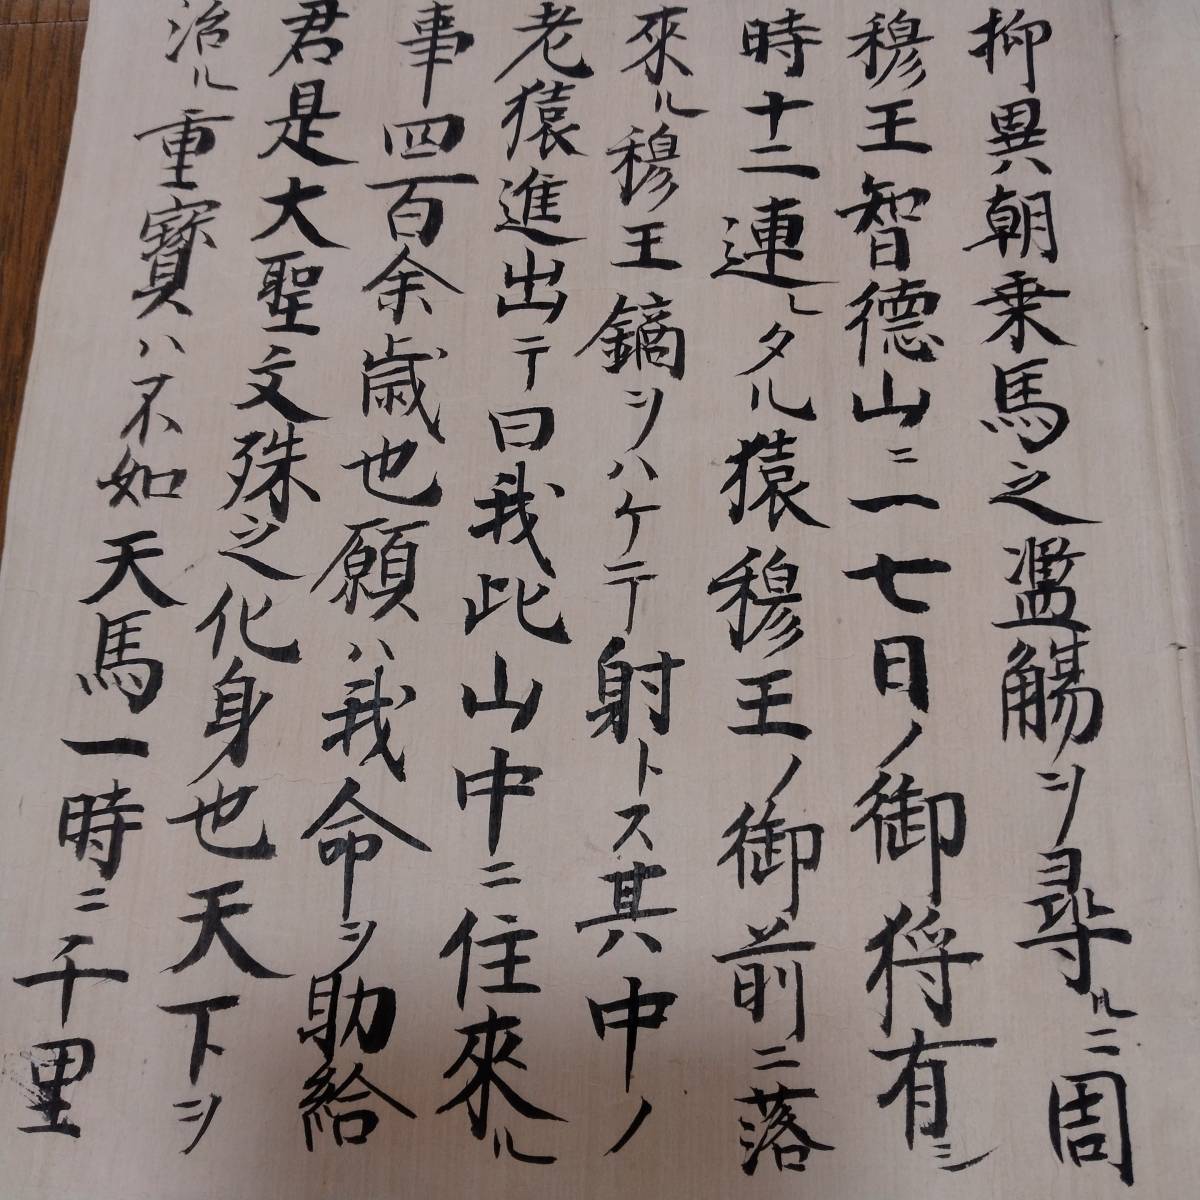 抑異朝乗馬之濫觴ヲ尋ルニ周
穆王智德山ニ二七日ノ御狩有シ
時十二連レタル猿穆王ノ御前ニ落
來ル穆王鏑ヲハケテ射トス其中ノ
老猿進出テ曰我此山中ニ住來ル
事四百余歳也願ハ我命ヲ助給
君是大聖文殊之化身也天下ヲ
治ル重寳ハ不如天馬一時ニ千里